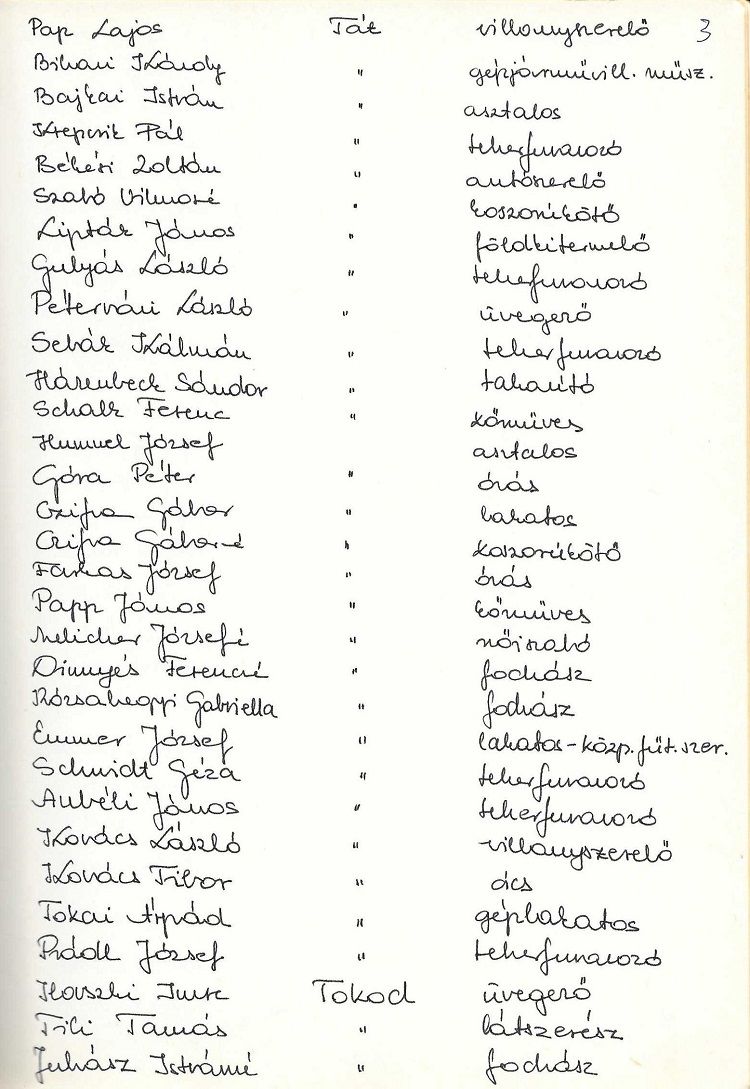 Pap Lajos Tát villanyszerelő 3
Bihari Károly " gépjárművill. műsz.
Bajkai István " asztalos
Krepcsik Pál " teherfuvarozó
Békési Zoltán " autószerelő
Szabó Vilmosné " koszorúkötő
Lipták János " földkitermelő
Gulyás László " teherfuvarozó
Pétervári László " üvegező
Sebák Kálmán " teherfuvarozó
Sándor " takarító
Schalk Ferenc " kőműves
Hummel József asztalos
Góra Péter " órás
Czifra Gábor " lakatos
Czifra Gáborné " koszorúkötő
Farkas József " órás
Papp János " kőműves
Melicher Józsefé " nőiszabó
Dinnyés Ferencné " fodrász
Rózsahegyi Gabriella " fodrász
Emmer József " lakatos-közp.fűt.szer.
Schmidt Géza " teherfuvarozó
Aubéli János " teherfuvarozó
Kovács László " villanyszerelő
Kovács Tibor " ács
Tokai Árpád " géplakatos
József " teherfuvarozó
Imre Tokod üvegező
Tili Tamás " látszerész
Juhász Istvánné " fodrász